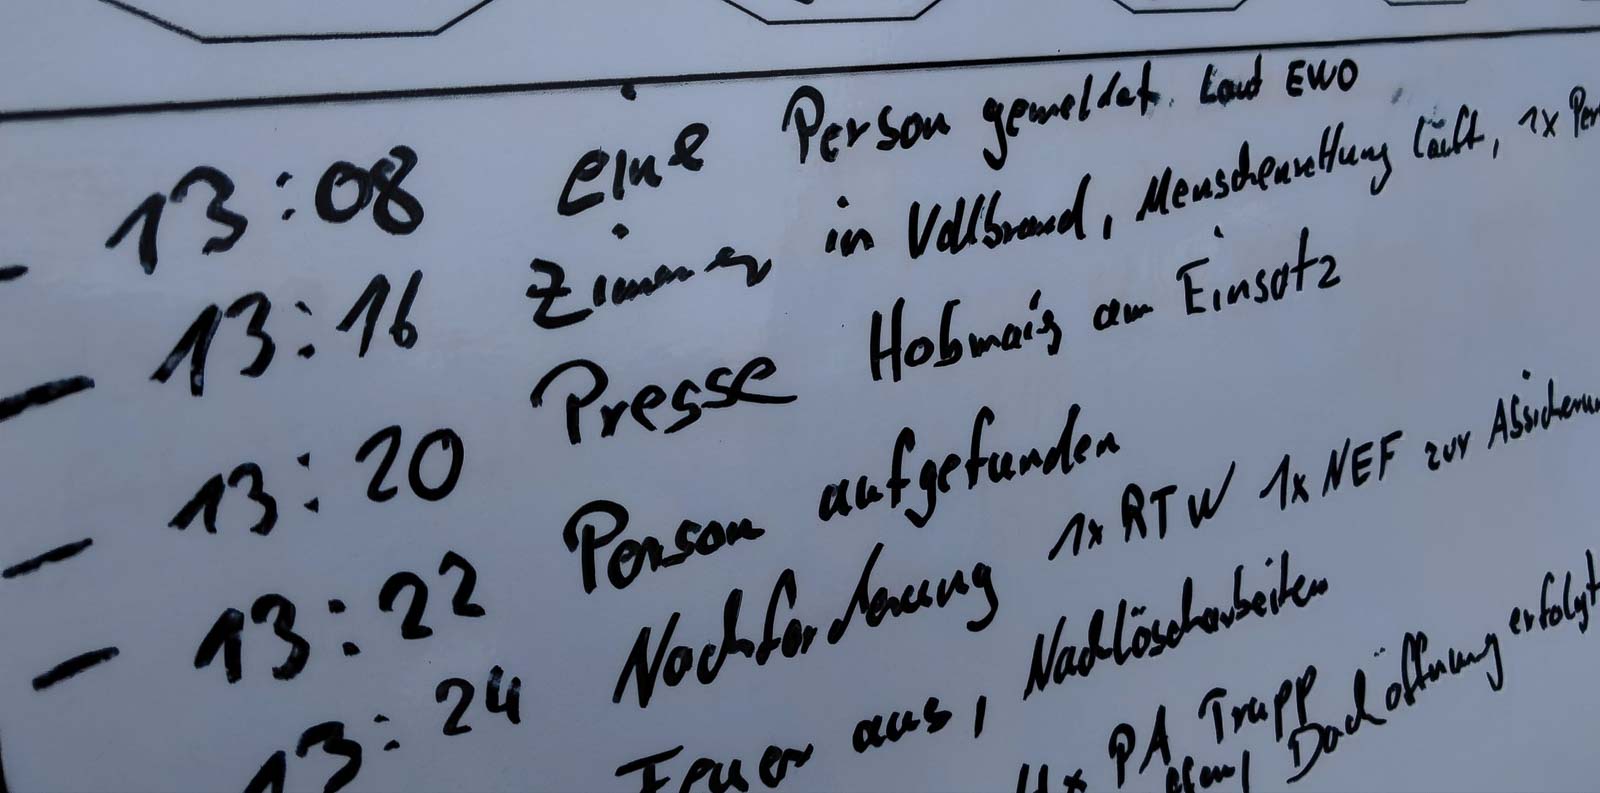 13:08 eine Person gemeldet laut EWO
- 13:16 Zimmer in Vollbrand, Menschenrettung läuft, 1x Per
- 13:20 Presse Hobmaig am Einsatz
- 13:22 Person aufgefunden
- 13:24 Nachforderung 1x RTW 1x NEF zur Absicherun
13: Feuer aus, Nachlöscharbeiten
4x PA Trupp
Dachöffnung erfolgt